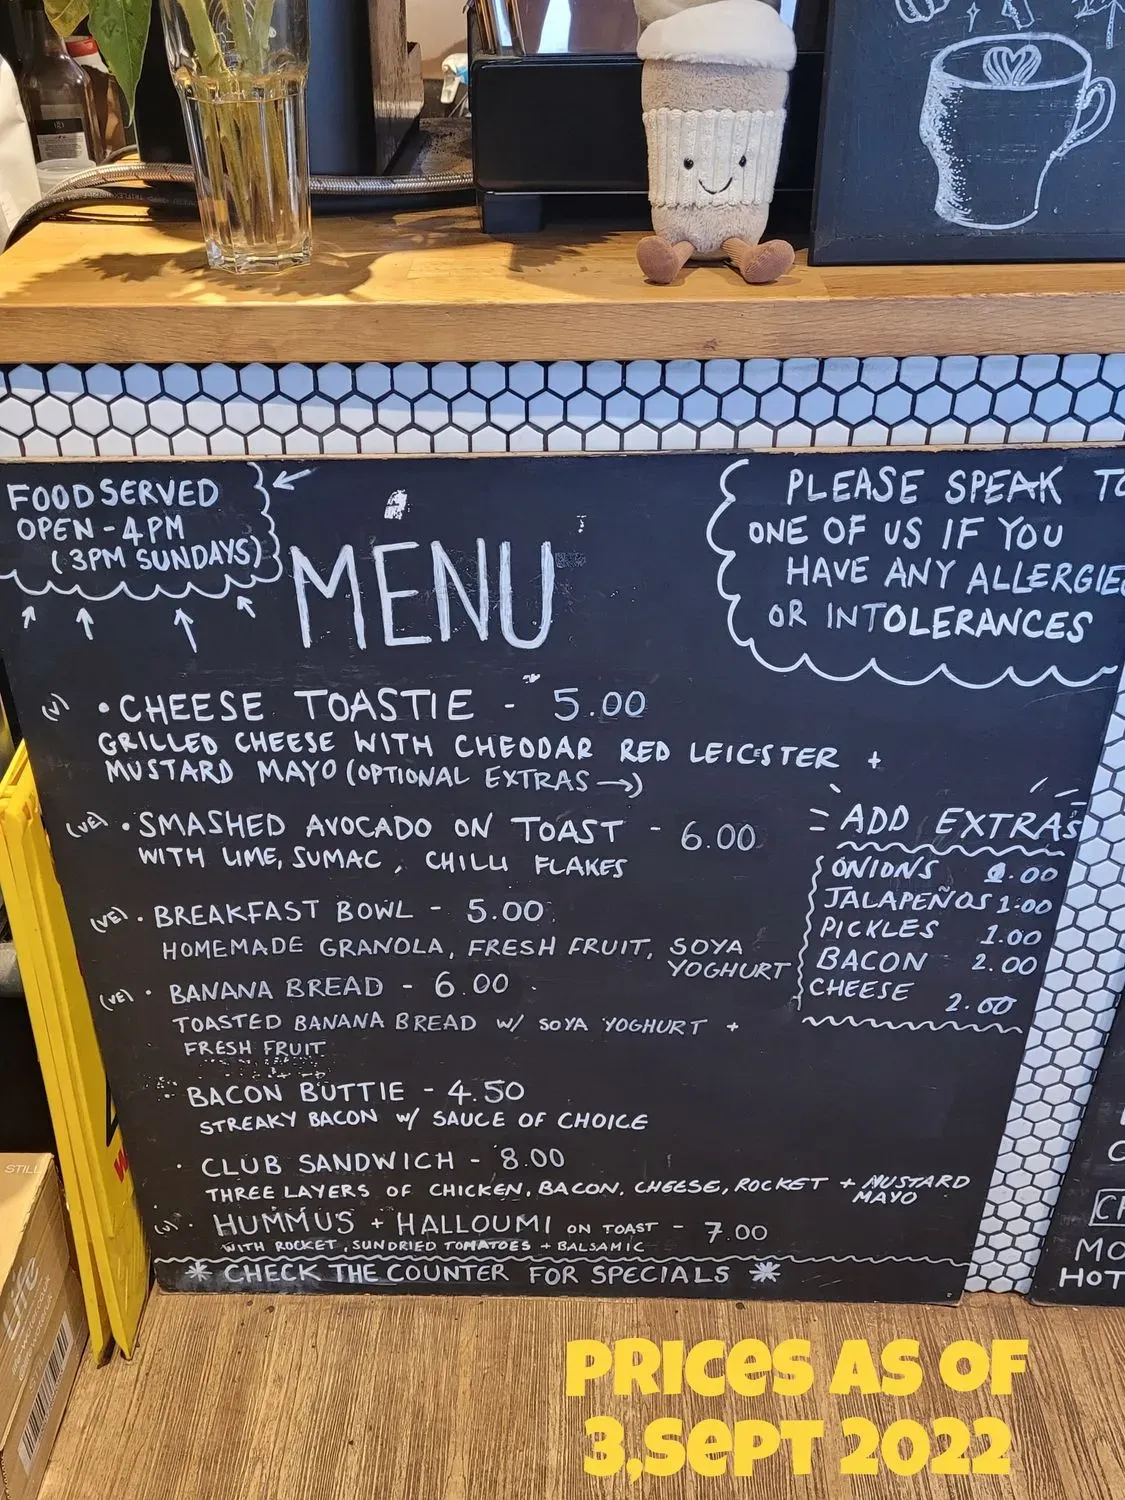 FOOD SERVED
OPEN - 4PM
(3PM SUNDAYS)
MENU
PLEASE SPEAK TO
ONE OF US IF YOU
HAVE ANY ALLERGIES
OR INTOLERANCES
(V) • CHEESE TOASTIE - 5.00
GRILLED CHEESE WITH CHEDDAR RED LEICSTER +
MUSTARD MAYO (OPTIONAL EXTRAS →)
(VE) • SMASHED AVOCADO ON TOAST - 6.00
WITH LIME, SUMAC, CHILLI FLAKES
(VE) • BREAKFAST BOWL - 5.00
HOMEMADE GRANOLA, FRESH FRUIT, SOYA
YOGHURT
(VE) • BANANA BREAD - 6.00
TOASTED BANANA BREAD W/ SOYA YOGHURT +
FRESH FRUIT
• BACON BUTTIE - 4.50
STREAKY BACON W/ SAUCE OF CHOICE
• CLUB SANDWICH - 8.00
THREE LAYERS OF CHICKEN, BACON, CHEESE, ROCKET + MUSTARD
MAYO
(V) • HUMMUS + HALLOUMI ON TOAST - 7.00
WITH ROCKET, SUNDRIED TOMATOES + BALSAMIC
* CHECK THE COUNTER FOR SPECIALS *
ADD EXTRAS
ONIONS 1.00
JALAPEÑOS 1.00
PICKLES 1.00
BACON 2.00
CHEESE 2.00
MO
HOT
STILL
Life
PRICES AS OF
3,SEPT 2022